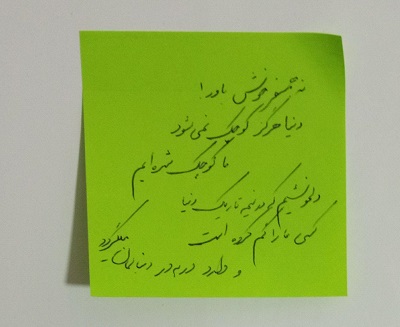 نه همسفر خوش باور!
دنیا هرگز کوچک نمی‌شود
ما کوچک شده‌ایم
دلخوشیم که نیمه تاریک دنیا
کسی ما را گم کرده است
و دارد در به در دنبالمان میگردد